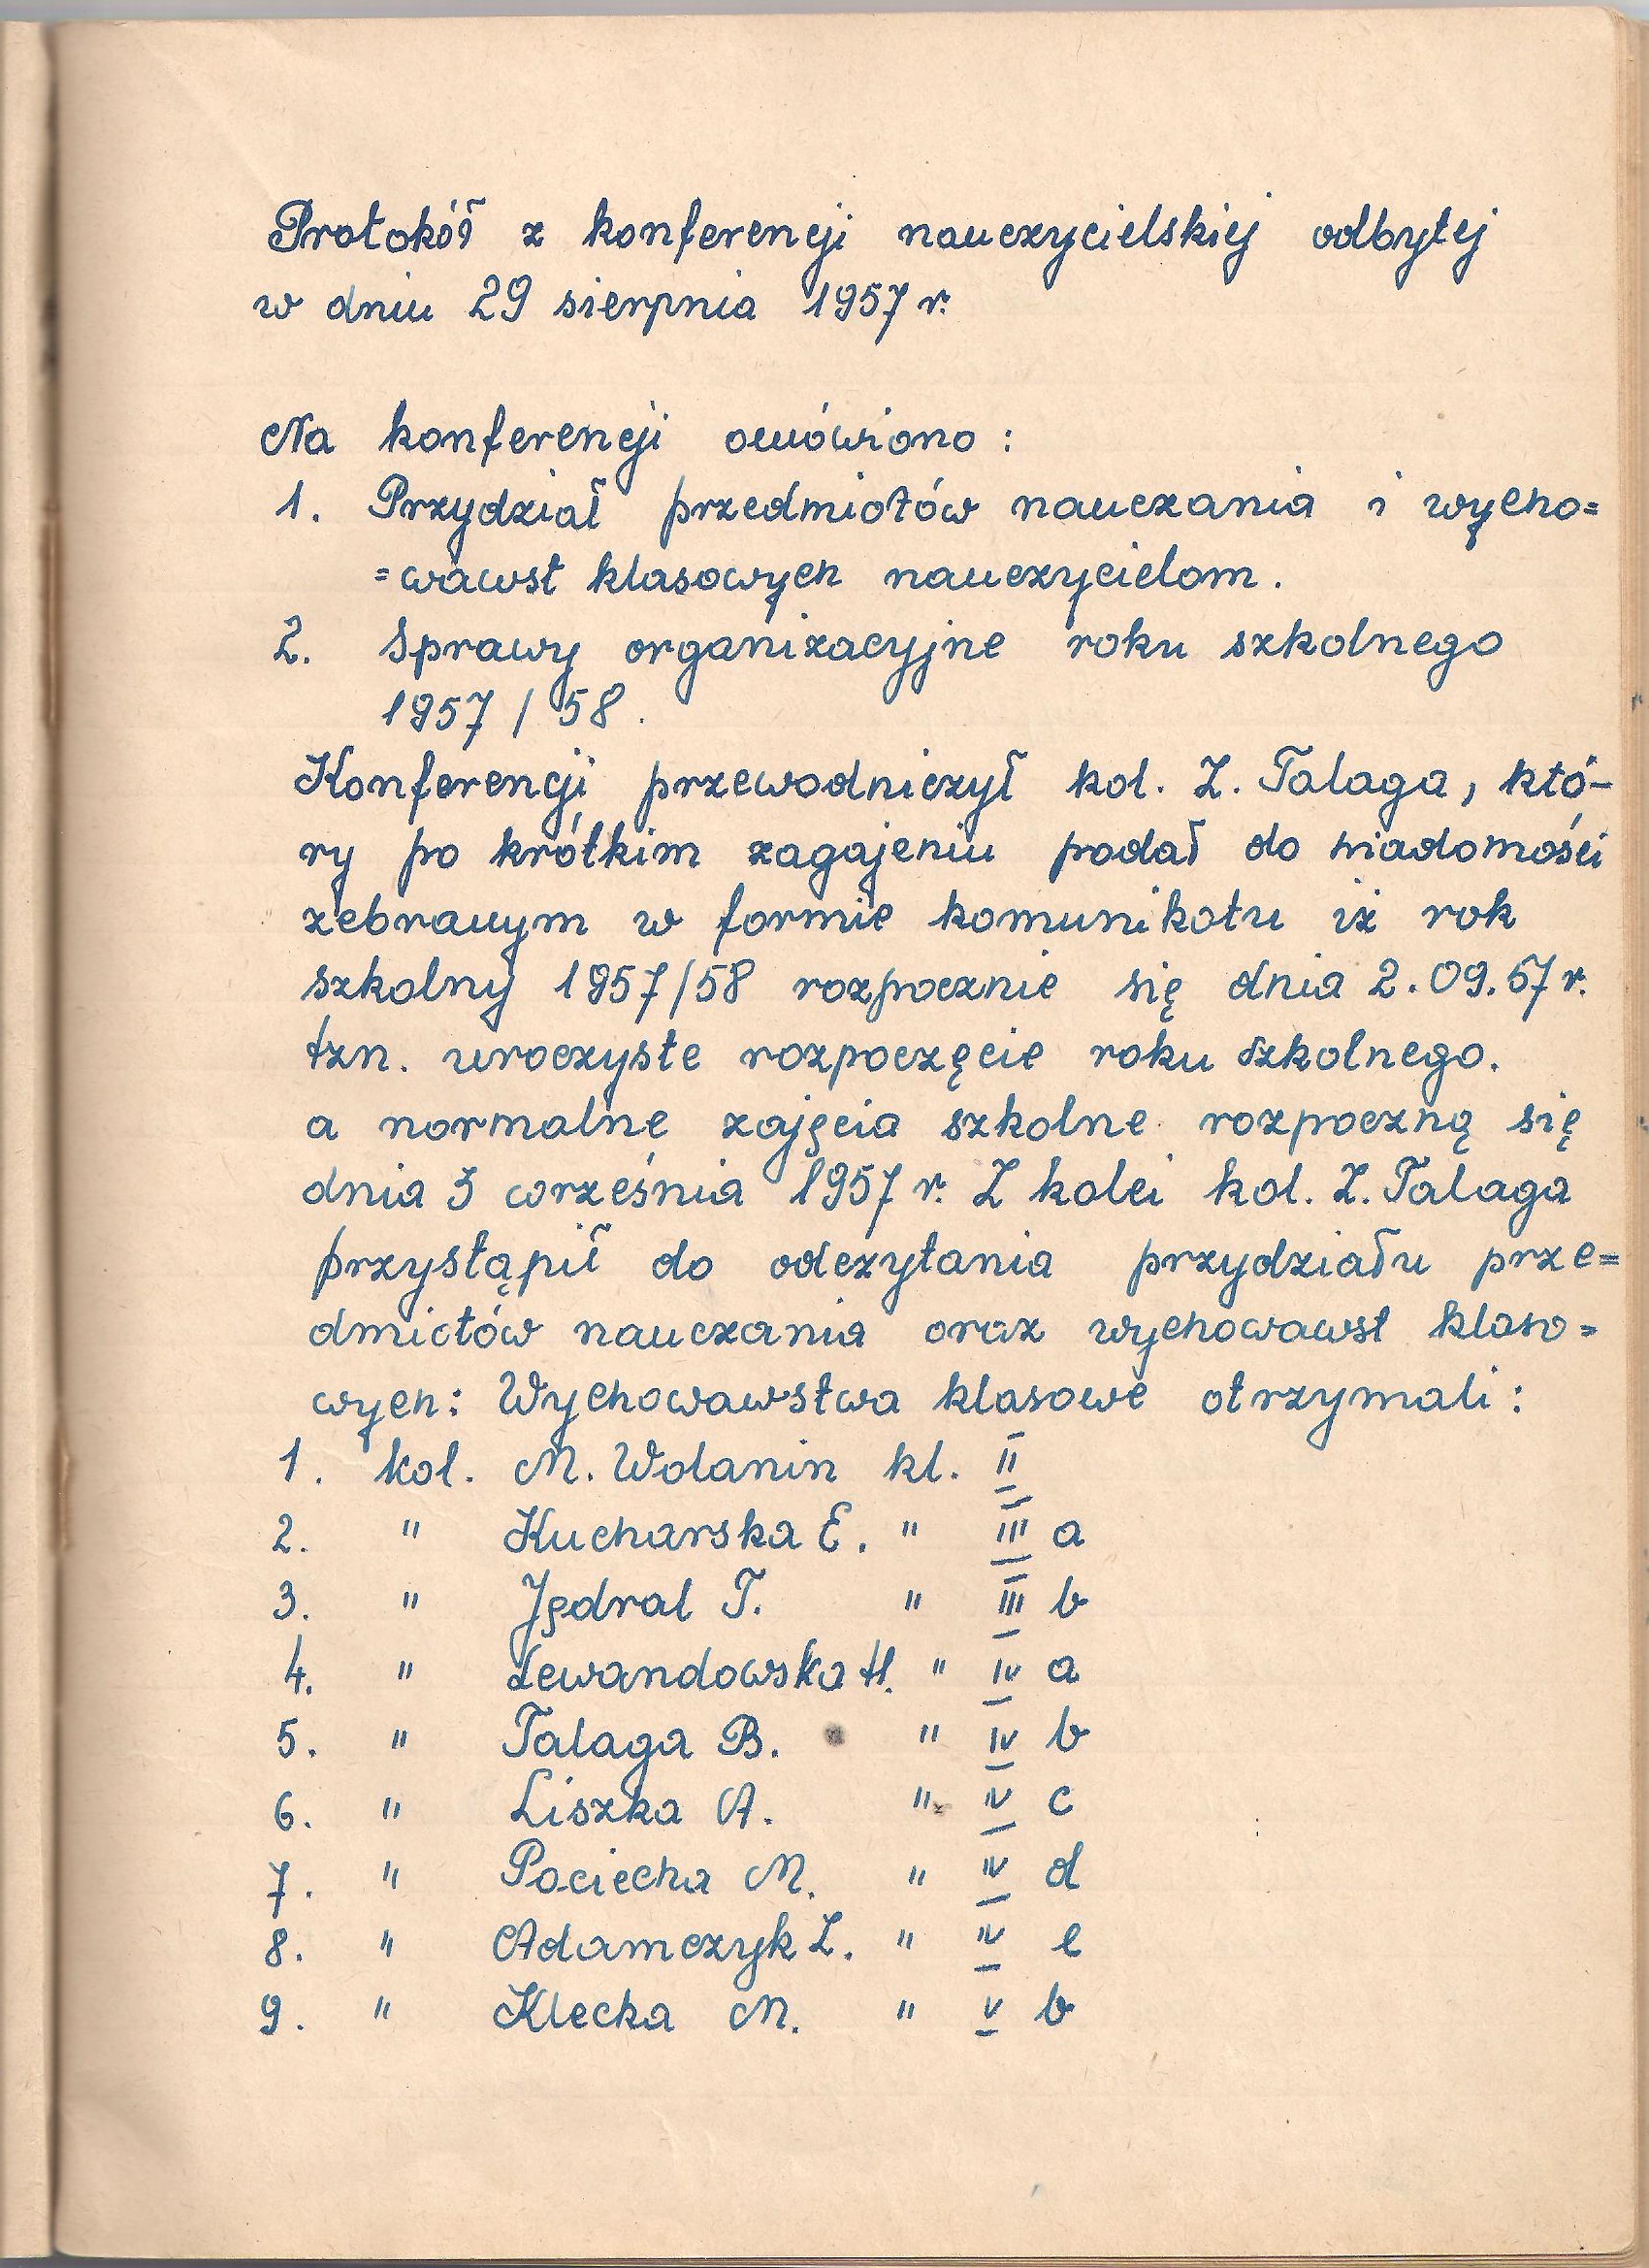 Protokół z konferencji nauczycielskiej odbytej
w dniu 29 sierpnia 1957 r.
Na konferencji omówiono :
1. Przydział przedmiotów nauczania i wycho=
=wawst klasowych nauczycielom.
2. Sprawy organizacyjne roku szkolnego
1957 / 58.
Konferencji przewodniczył kol. Z. Talaga, któ-
ry po krótkim zagajeniu podał do wiadomości
zebranym w formie komunikatu iż rok
szkolny 1957/58 rozpocznie się dnia 2.09.57 r.
tzn. uroczyste rozpoczęcie roku szkolnego.
a normalne zajęcia szkolne rozpoczną się
dnia 3 września 1957 r. Z kolei kol. Z. Talaga
przystąpił do odczytania przydziału prze=
dmiotów nauczania oraz wychowawst klaso=
wych: Wychowawstwa klasowe otrzymali :
1. kol. M. Wolanin kl. II
2. " Kucharska E. " III a
3. " Jędral T. " III b
4. " Lewandowska H. " IV a
5. " Talaga B. " IV b
6. " Liszka A. " IV c
7. " Pociecha M. " IV d
8. " Adamczyk Z. " IV e
9. " Klecka M. " V b